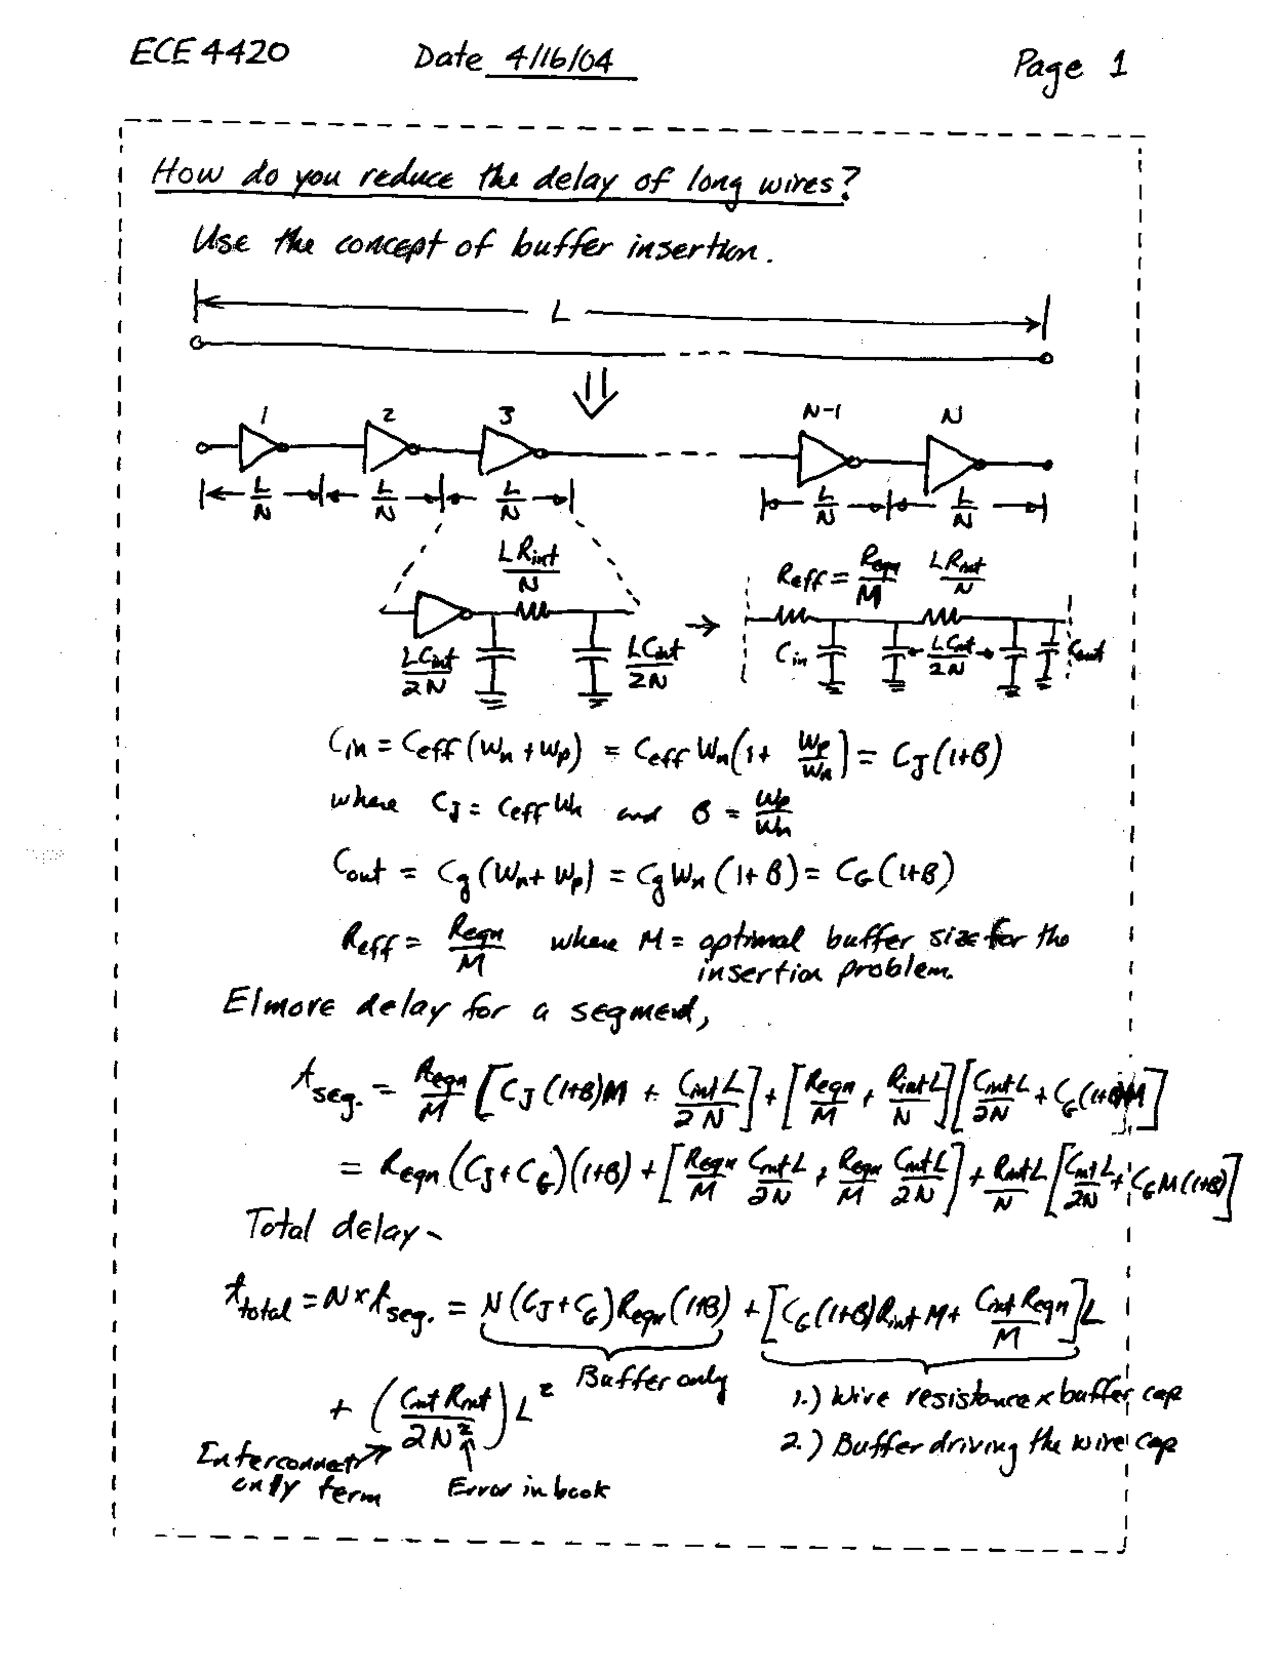 ECE 4420 Date 4/16/04 Page 1
How do you reduce the delay of long wires?
Use the concept of buffer insertion.
L
1 2 3 N-1 N
L/N L/N L/N L/N L/N
LRint/N Reff = Reqn/M LRint/N
LCint/2N LCint/2N Cin LCint/2N Cout
Cin = Ceff(Wn + Wp) = Ceff Wn(1 + Wp/Wn) = CJ(1+β)
where CJ = Ceff Wn and β = Wp/Wn
Cout = Cg(Wn + Wp) = Cg Wn(1+β) = CG(1+β)
Reff = Reqn/M where M = optimal buffer size for the
insertion problem.
Elmore delay for a segment,
tseg. = Reqn/M [CJ(1+β)M + CintL/2N] + [Reqn/M + RintL/N][CintL/2N + CG(1+β)M]
= Reqn(CJ+CG)(1+β) + [Reqn/M CintL/2N + Reqn/M CintL/2N] + RintL/N [CintL/2N + CGM(1+β)]
Total delay -
ttotal = N × tseg. = N(CJ+CG)Reqn(1+β) + [CG(1+β)Rint M + Cint Reqn/M]L
Buffer only
+ (Cint Rint/2N²)L² 1.) Wire resistance × buffer cap
2.) Buffer driving the wire cap
Interconnect
only term Error in book